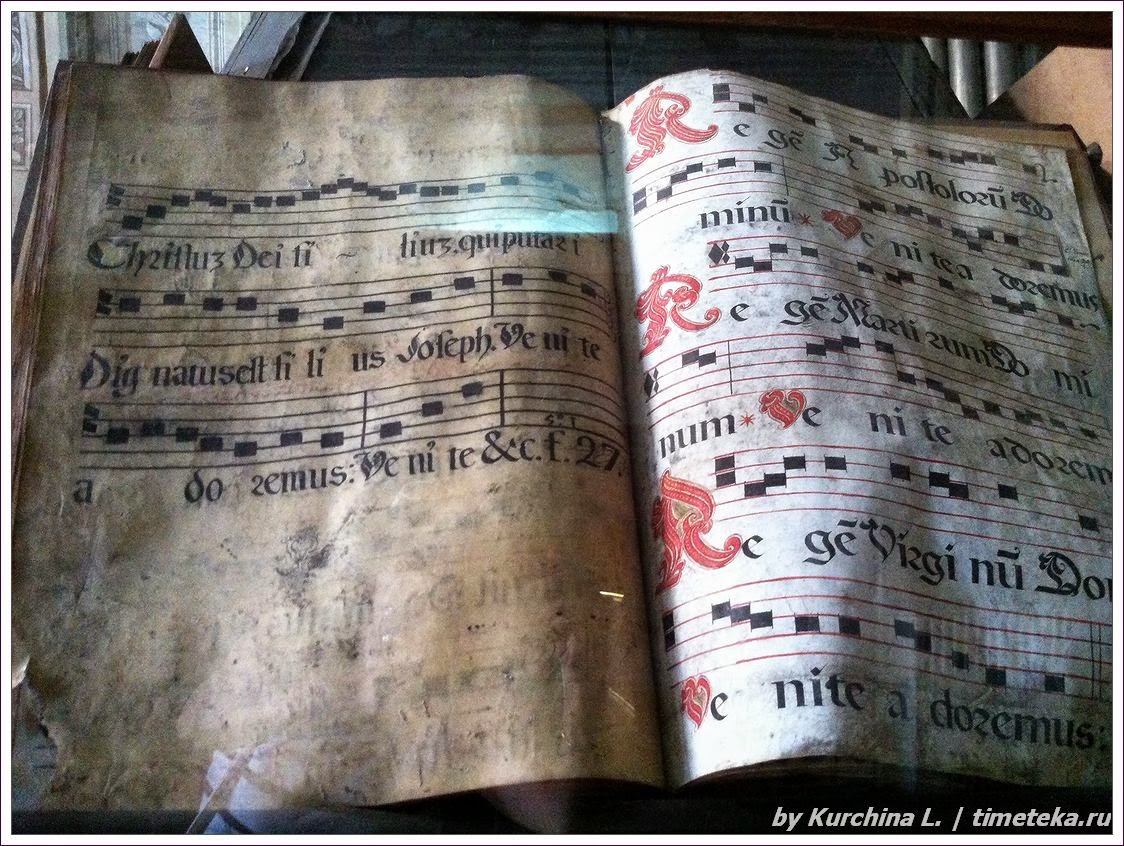 Christuz Dei fi ~ liuz. qui putari
Dig natus est fi li us Joseph. Ve ni te
a do remus: Ve ni te &c. f. 27.
Re gē A postolorū Do
minū * Ve ni te a doremus
Re gē Marti rum Do mi
num * Ve ni te adorem
Re gē Virgi nū Do
Ve nite a doremus:
by Kurchina L. | timeteka.ru